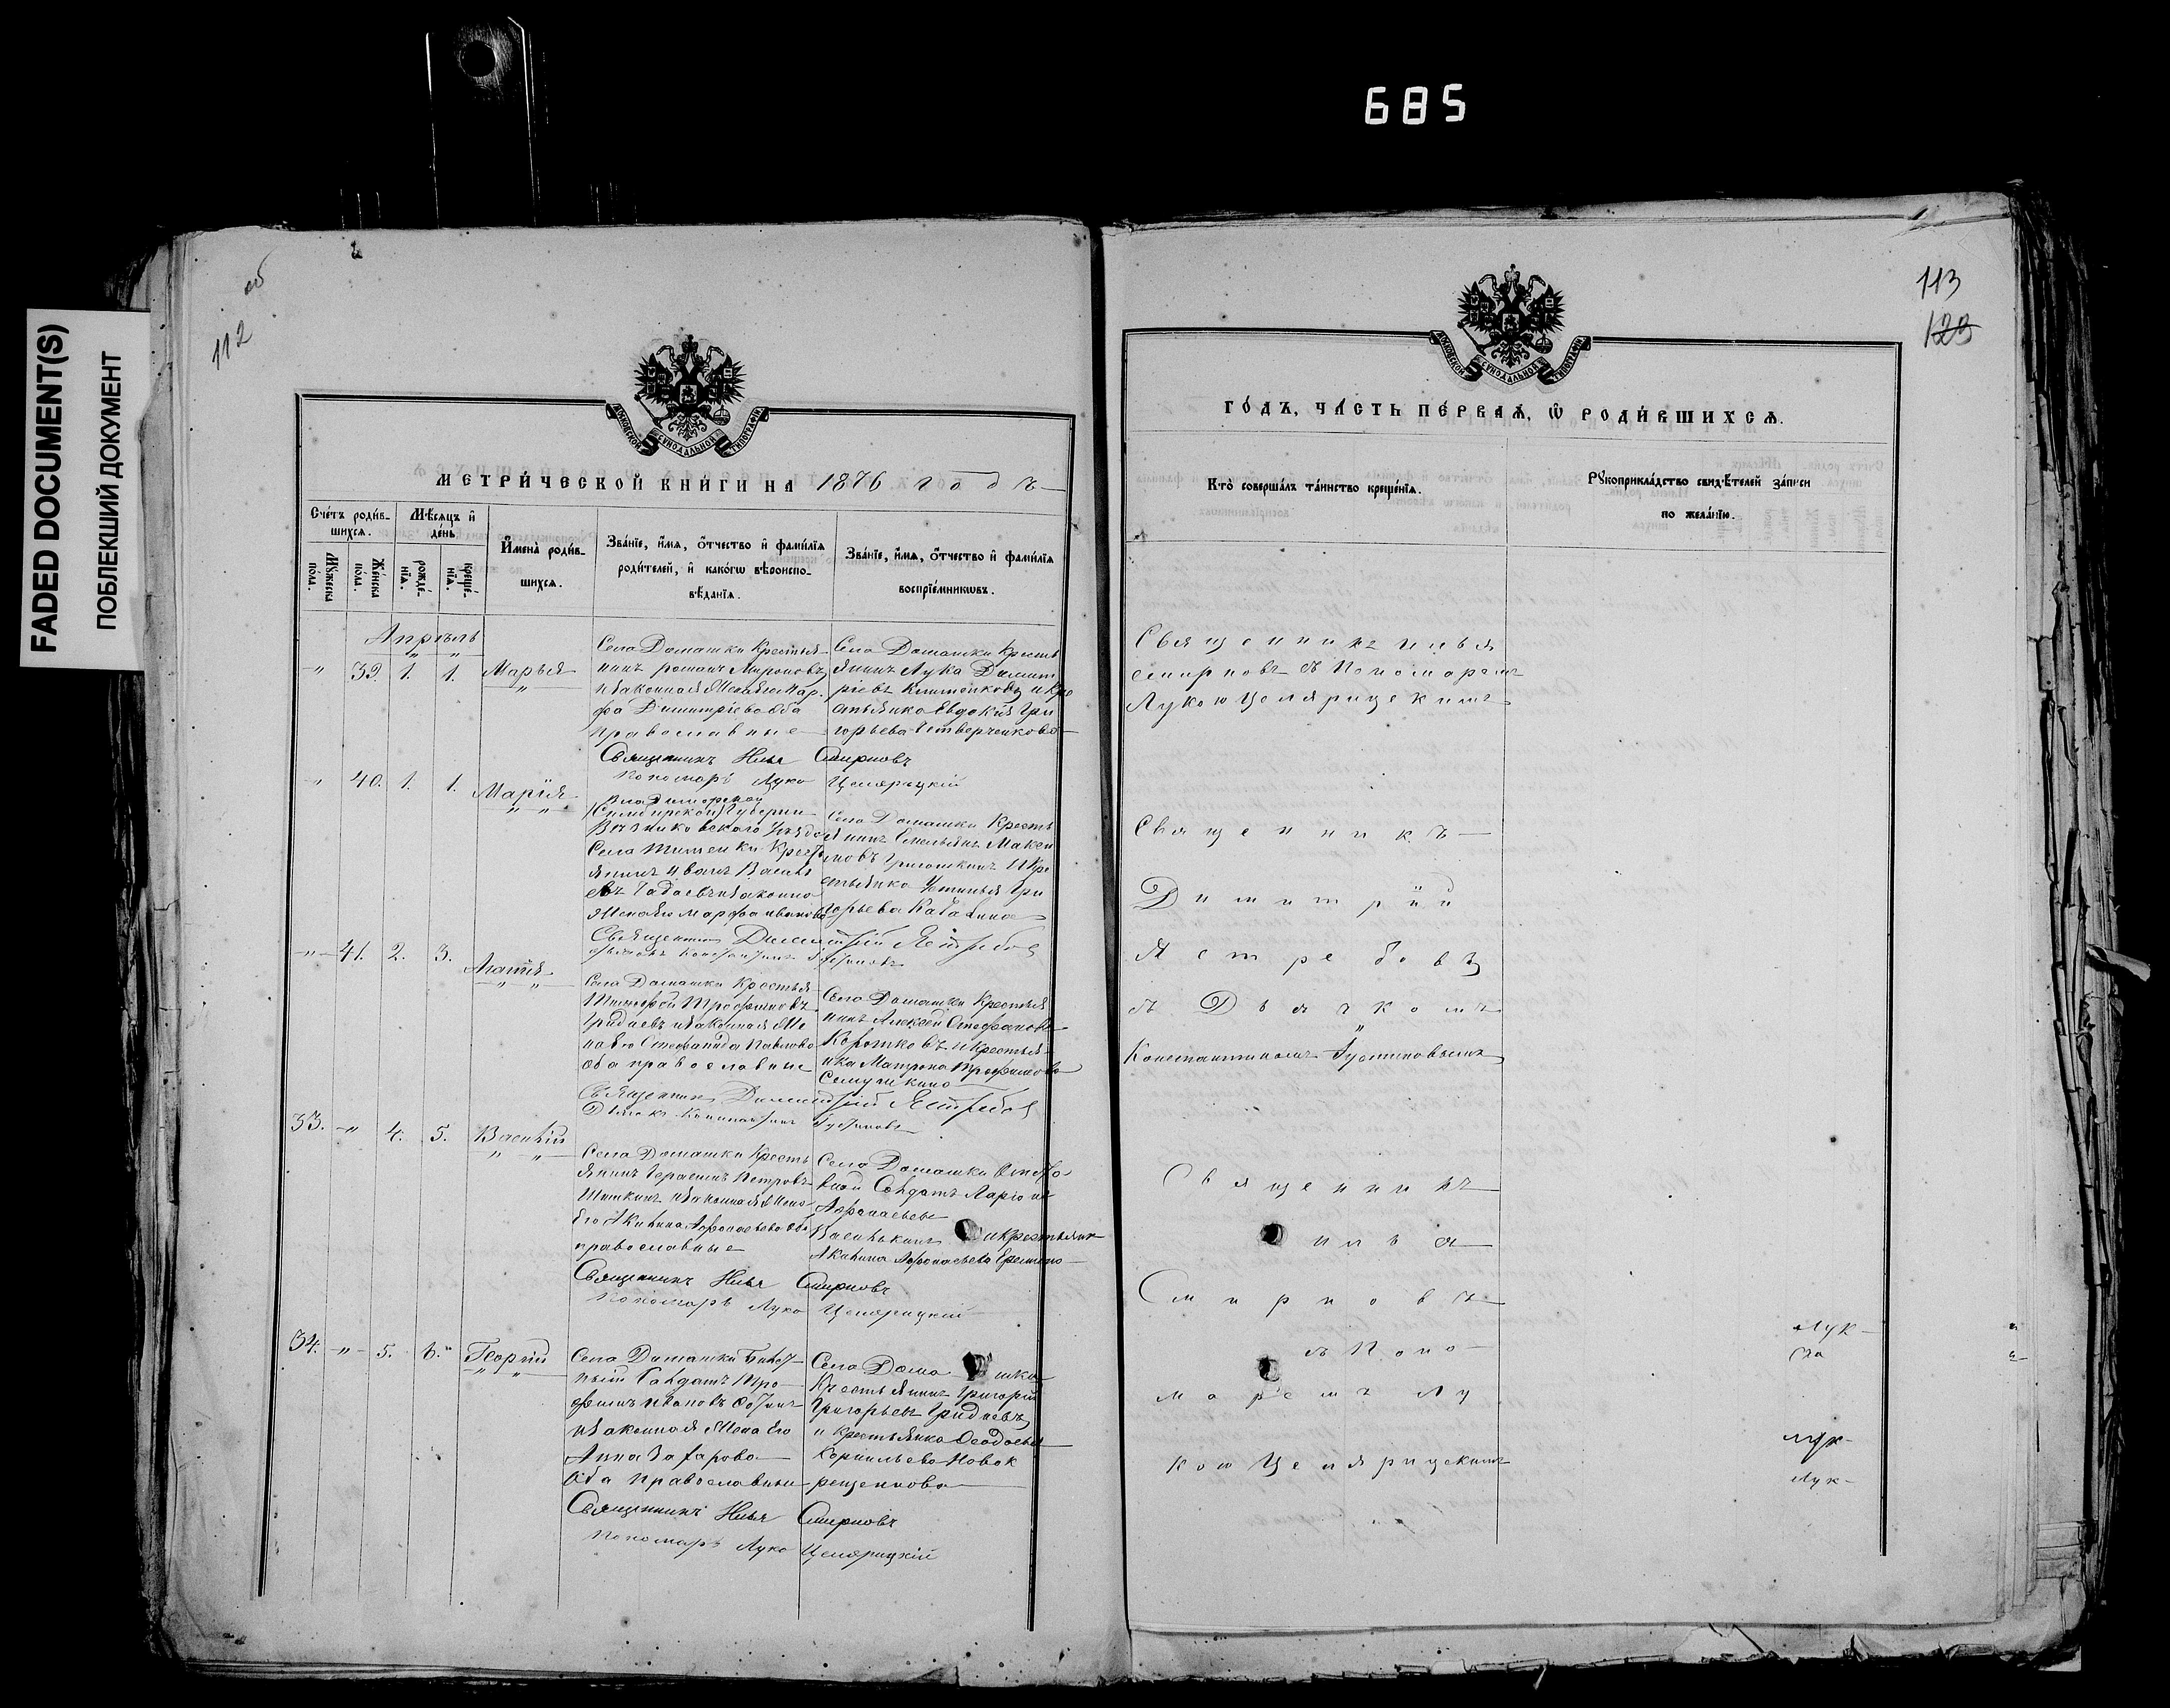 685
FADED DOCUMENT(S)
ПОБЛЕКШИЙ ДОКУМЕНТ
112
об
113
123
МОСКОВСКОЙ СѴНОДАЛЬНОЙ ТИПОГРАФІИ
МЕТРИ́ЧЕСКОЙ КНИ́ГИ НА 1876 годъ
Сче́тъ роди́в-
шихсѧ.
Мꙋ́жеска по́ла.
Же́нска по́ла.
Мѣ́сѧцъ и҆ де́нь
рожде́-нїѧ.
креще́-нїѧ.
И҆мена̀ роди́в-
шихсѧ.
Зва́нїе, и҆́мѧ, ѻ҆́тчество и҆ фами́лїѧ
роди́телей, и҆ како́гѡ вѣроиспо-
вѣ́данїѧ.
Зва́нїе, и҆́мѧ, ѻ҆́тчество и҆ фами́лїѧ
воспрїе́мникѡвъ.
Апрѣль
" 39. 1. 1. Марья
Села Домашки Крестья-
нинъ романъ Мироновъ
и законная Жена Его Мар.
фа Димитріева оба
православные
Села Домашки Кресть
янинъ Лука Димит
ріевъ Клитенковъ и Кре
стьянка Евдокія Гри
горьева Четверченкова
Священникъ Илья Смирновъ
Пономарь Лука Целярицкій
" 40. 1. 1. Марія
Владимірской
Симбирской Губерни
Вязниковскаго Уѣзда
Села Крестья
янинъ Иванъ Василь
евъ и законна
я Жена Его марфа иванова
Села Домашки Кресть
янинъ Емельянъ Макси
мовъ и Кре
стьянка Устинья Гри
горьева
Священникъ Димитрій Ястребовъ
дьячекъ Константинъ Густиновъ
" 41. 2. 3. Агапія
Села Домашки Крестья-
Тимофей Трофимовъ
Гридневъ и законная Же
на Его Стефанида Павлова
оба православные
Села Домашки Крестья
нинъ Алексѣй Стефановъ
Коротковъ и крестья-
нка Матрона Трофимова
Семушкина
Священникъ Димитрій Ястребовъ
Дьячекъ Константинъ Густиновъ
33. " 4. 5. Василій
Села Домашки Кресть
янинъ Герасимъ Петровъ
Шишкинъ и законная Жена
Его Акилина Афонасьева оба
православные
Села Домашки Отста
вной Солдатъ Ларіонъ
Афонасьевъ
Васинькинъ и крестьянк
Акилина Афонасьева
Священникъ Илья Смирновъ
Пономарь Лука Целярицкій
34. " 5. 6. Георгій
Села Домашки Билет
ный Солдатъ Тро-
фимъ Ивановъ
и законная Жена Его
Анна Захарова
Оба Православные
Села Домашки
Крестьянинъ Григорій
Григорьевъ Гридневъ
и крестьянка Феодосья
Корнильева Новок
рещеннова
Священникъ Илья Смирновъ
Пономарь Лука Целярицкій
МОСКОВСКОЙ СѴНОДАЛЬНОЙ ТИПОГРАФІИ
ГО́ДЪ, ЧА́СТЬ ПЕ́РВАѦ, Ѽ РОДИ́ВШИХСѦ.
Кто̀ соверша́лъ та́инство креще́нїѧ.
Рꙋкоприкла́дство свидѣ́телей за́писи
по жела́нїю.
Священникъ илья
смирновъ съ Пономаремъ
Лукою Целярицскимъ
Священникъ
Димитрій
Ястребовъ
съ Дьячкомъ
Константиномъ Густиновымъ
Священникъ
илья
Смирновъ
съ Поно
маремъ Лу
кою Целярицскимъ
Лук-
Лук-